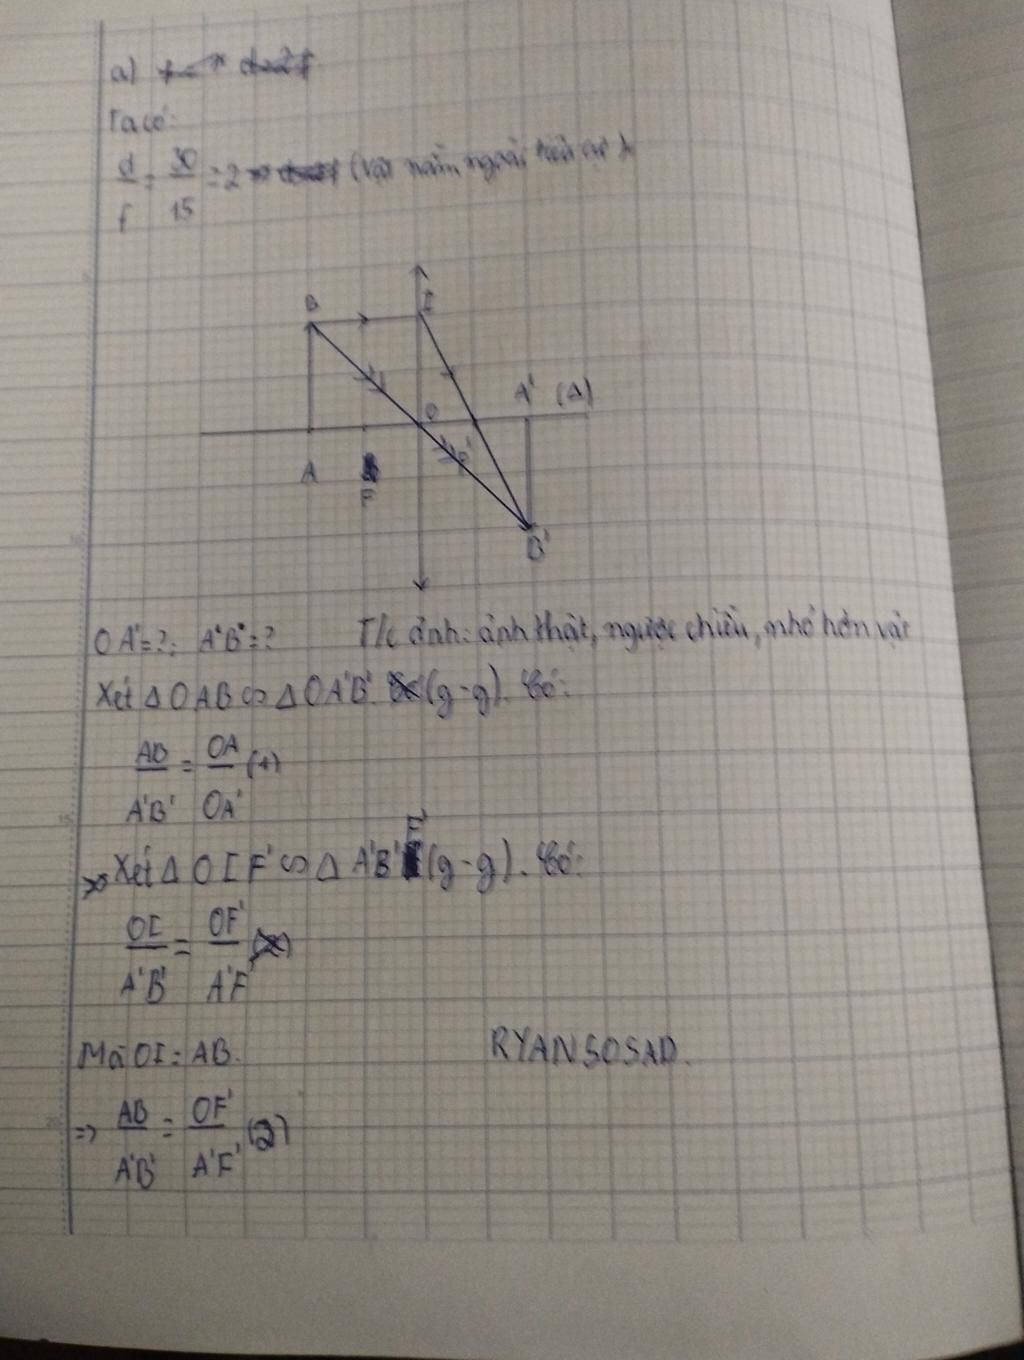 a)
Ta có:
d/f = 30/15 = 2 (vật nằm ngoài tiêu cự)
B I
O A' (Δ)
A F F'
B'
OA'=?; A'B'=? T/c ảnh: ảnh thật, ngược chiều, nhỏ hơn vật
Xét Δ OAB ∽ Δ OA'B' (g-g). Có:
AB/A'B' = OA/OA' (1)
Xét Δ OIF' ∽ Δ A'B'F' (g-g). Có:
OI/A'B' = OF'/A'F'
Mà OI = AB.
RYANSOSAD.
=> AB/A'B' = OF'/A'F' (2)